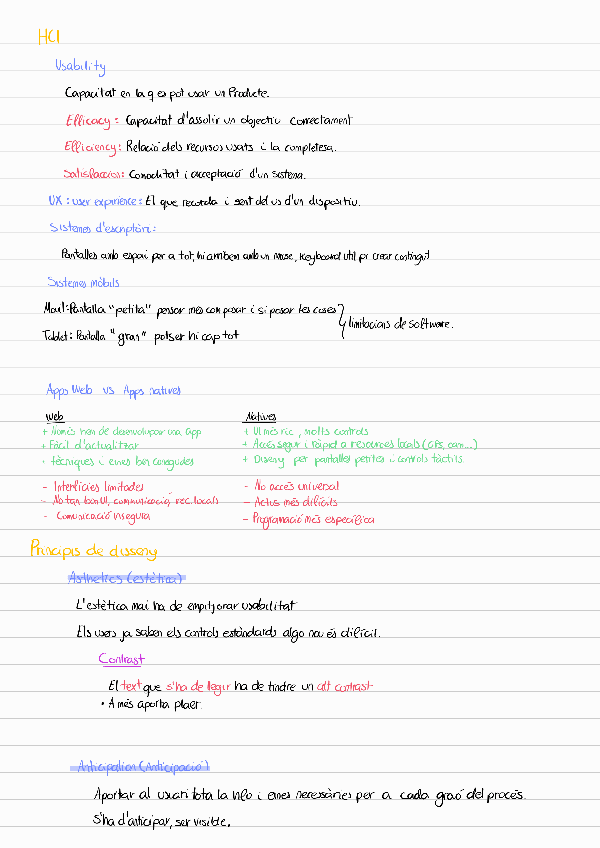 HCI
Usability
Capacitat en la q es pot usar un Producte.
Efficacy: Capacitat d'assolir un objectiu correctament
Efficiency: Relació dels recursos usats i la completesa.
Satisfaccion: Comoditat i acceptació d'un sistema.
UX: user experience: El que recorda i sent del us d'un dispositiu.
Sistemes d'escriptori:
Pantalles amb espai per a tot, hi arriben amb un mouse, Keyboard util pr crear contingut
Sistemes mòbils
Movil: Pantalla "petita" pensar més com posar i si posar les coses
Tablet: Pantalla "gran" potser hi cap tot
limitacions de software.
Apps Web vs Apps natives
Web
+ Només hem de desenvolupar una App
+ Fàcil d'actualitzar
+ tècniques i eines ben conegudes
- Interfícies limitades
- No tan bon UI, communicació, rec. locals
- Comunicació insegura
Natives
+ UI més ric, molts controls
+ Accés segur i ràpid a resources locals (GPS, cam...)
+ Disseny per pantalles petites i controls tàctils.
- No accés universal
- Actus més difícils
- Programació més específica
Principis de disseny
Asthetics (estètica)
L'estètica mai ha de empitjorar usabilitat
Els users ja saben els controls estàndards algo nou és difícil.
Contrast
El text que s'ha de llegir ha de tindre un alt contrast
• A més aporta plaer.
Anticipation (Anticipació)
Aportar al usuari tota la info i eines necessàries per a cada graó del procés.
S'ha d'anticipar, ser visible.